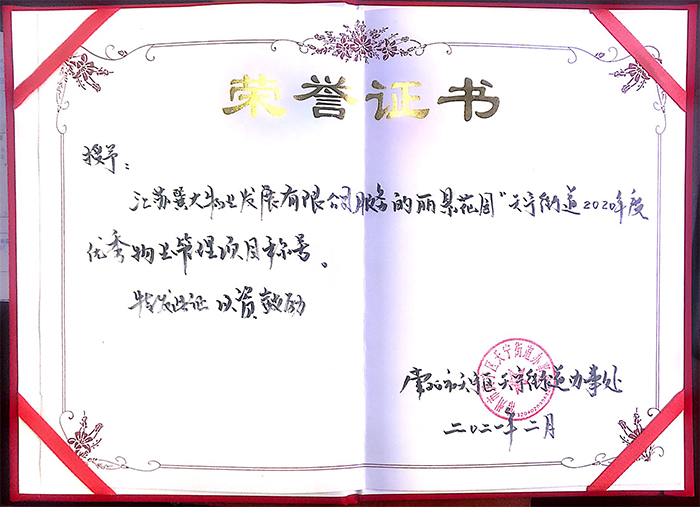 荣誉证书
授予：
江苏冀大物业发展有限公司服务的丽景花园"天宁街道2020年度
优秀物业管理项目称号。
特发此证 以资鼓励
常州市天宁区天宁街道办事处
二〇二一年二月